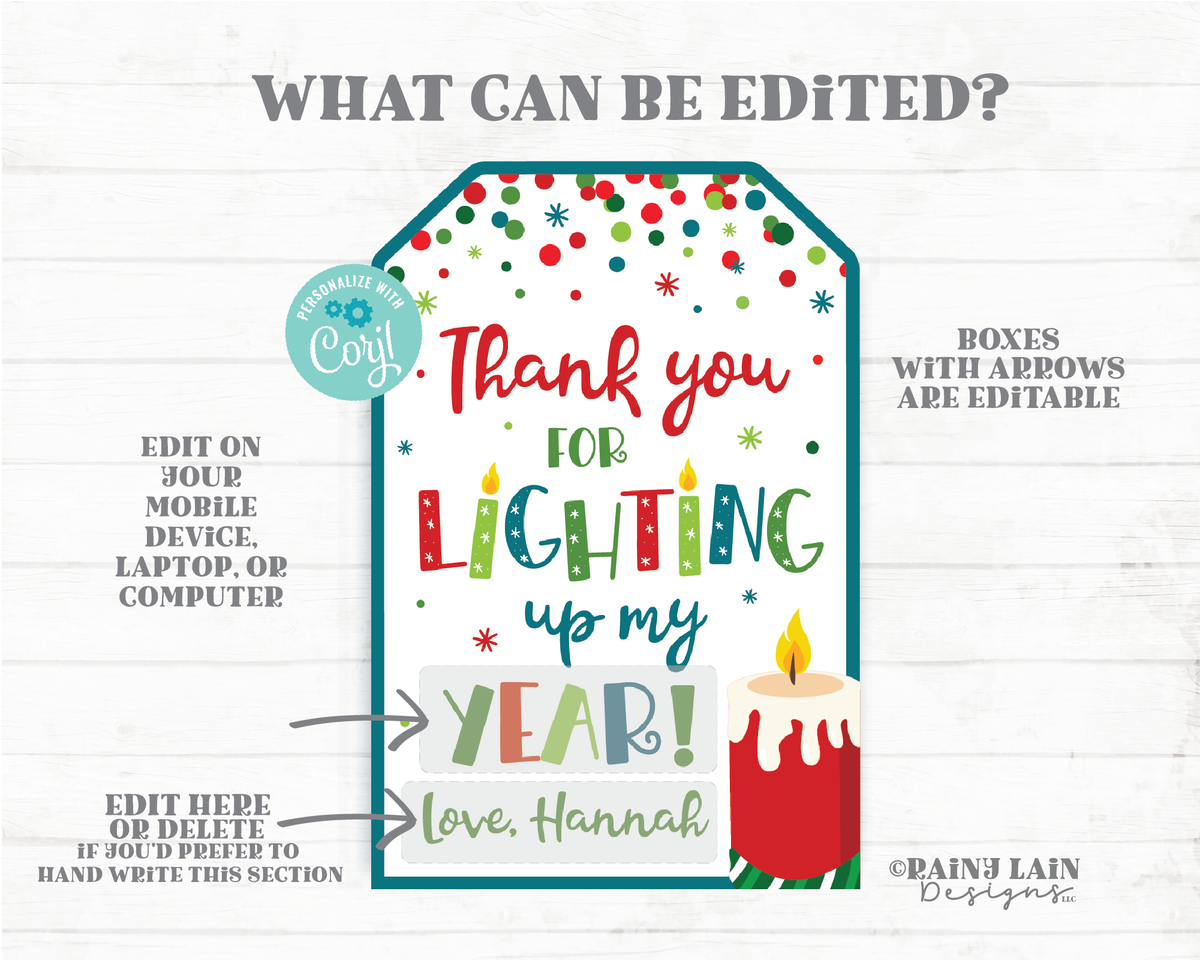 WHAT CAN BE EDiTED?
PERSONALIZE WITH
Corj!
Thank you
FOR
LiGHTiNG
up my
YEAR!
Love, Hannah
BOXES
WiTH ARROWS
ARE EDiTABLE
EDIT ON
YOUR
MOBiLE
DEViCE,
LAPTOP, OR
COMPUTER
EDIT HERE
OR DELETE
iF YOU'D PREFER TO
HAND WRiTE THiS SECTiON
©RAiNY LAiN
Designs LLC